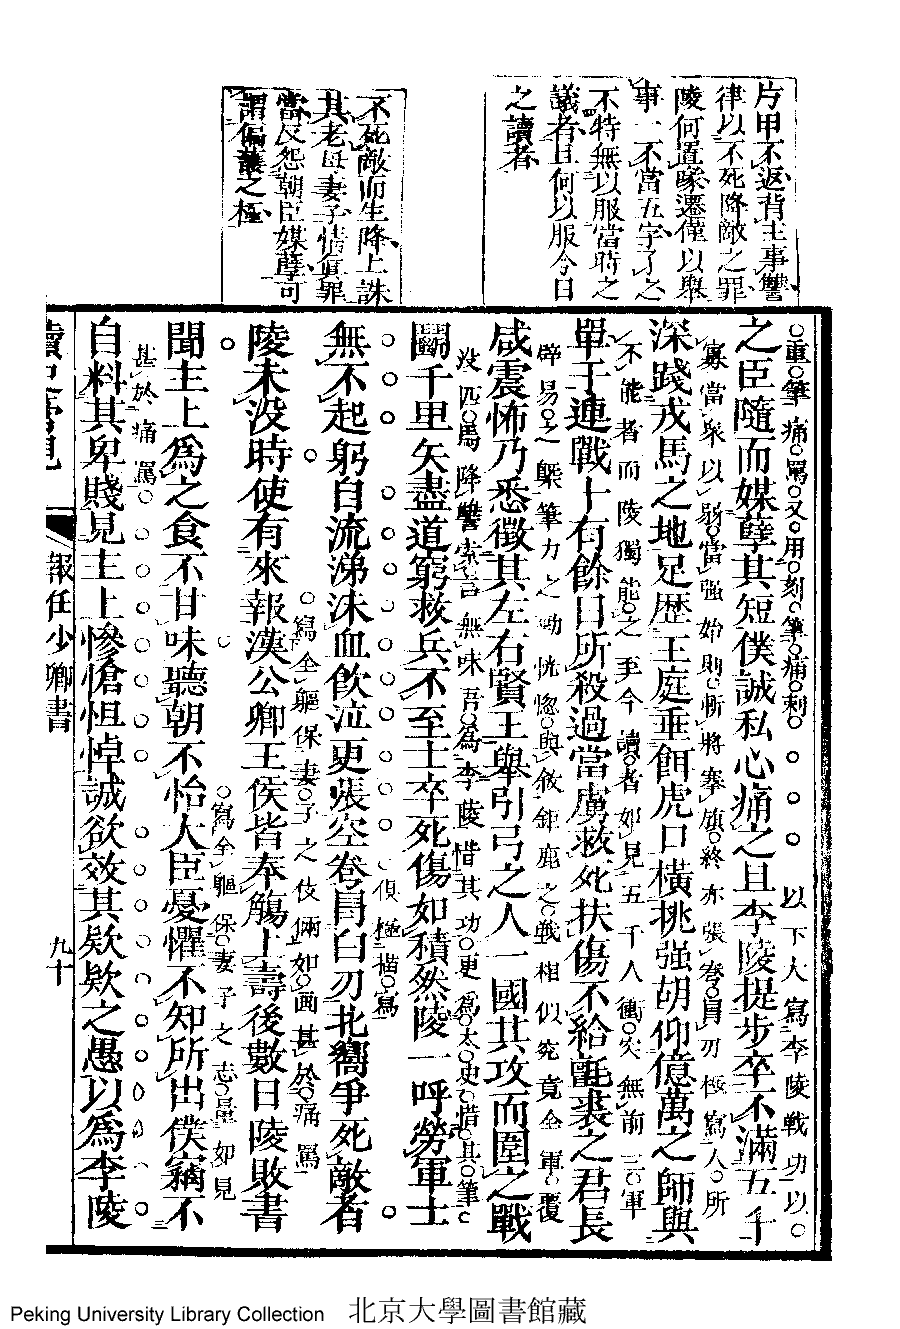 片甲不返背主事讐
律以不死降敵之罪
陵何置喙遷僅以舉
事一不當五字了之
不特無以服當時之
議者且何以服今日
之讀者
不死敵而生降上誅
其老母妻子情眞罪
當反怨朝臣媒孽可
謂偏護之極
重筆痛罵又用刻筆痛刺
以下大寫李陵戰功以
之臣隨而媒孽其短僕誠私心痛之且李陵提步卒不滿五千
寡當衆以弱當强始則斬將搴旗終亦張弮冐刃極寫人所
深踐戎馬之地足歷王庭垂餌虎口橫挑强胡仰億萬之師與
不能者而陵獨能之至今讀者如見五千人衝突無前三軍
單于連戰十有餘日所殺過當虜救死扶傷不給氈裘之君長
辟易之槩筆力之勁恍惚與敘鉅鹿之戰相似究竟全軍覆
咸震怖乃悉徵其左右賢王舉引弓之人一國共攻而圍之戰
没匹馬降讐索言無味吾爲李陵惜其功更爲太史惜其筆
鬭千里矢盡道窮救兵不至士卒死傷如積然陵一呼勞軍士
極描寫
無不起躬自流涕沬血飮泣更張空弮冐白刃北嚮爭死敵者
寫全軀保妻子之伎倆如畫甚於痛罵
陵未没時使有來報漢公卿王侯皆奉觴上壽後數日陵敗書
寫全軀保妻子之志量如見
聞主上爲之食不甘味聽朝不怡大臣憂懼不知所出僕竊不
甚於痛罵
自料其卑賤見主上慘愴怛悼誠欲效其欵欵之愚以爲李陵
報任少卿書
九十
Peking University Library Collection 北京大學圖書館藏